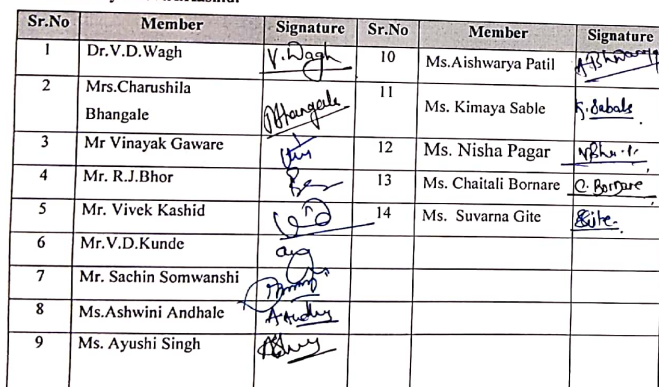 Sr.No Member Signature Sr.No Member Signature
1 Dr.V.D.Wagh V.Wagh 10 Ms.Aishwarya Patil
2 Mrs.Charushila Bhangale Bhangale 11 Ms. Kimaya Sable
3 Mr Vinayak Gaware 12 Ms. Nisha Pagar
4 Mr. R.J.Bhor 13 Ms. Chaitali Bornare C. Bornare
5 Mr. Vivek Kashid 14 Ms. Suvarna Gite Gite
6 Mr.V.D.Kunde
7 Mr. Sachin Somwanshi
8 Ms.Ashwini Andhale
9 Ms. Ayushi Singh